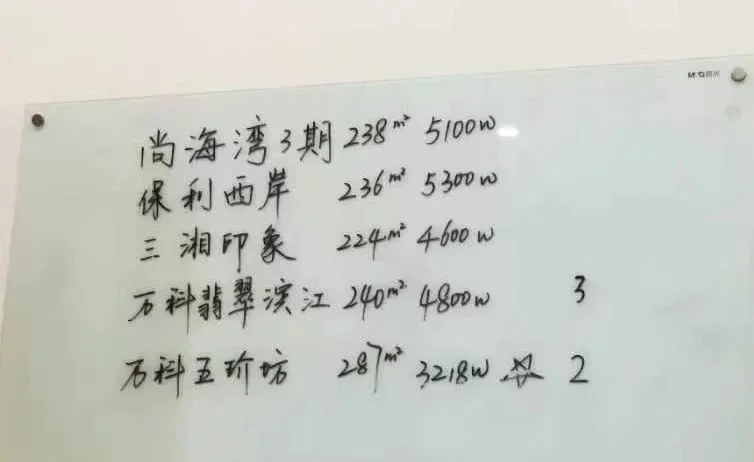 M&G晨光
尚海湾3期 238m² 5100w
保利西岸 236m² 5300w
三湘印象 224m² 4600w
万科翡翠滨江 240m² 4800w 3
万科五玠坊 287m² 3218w 2